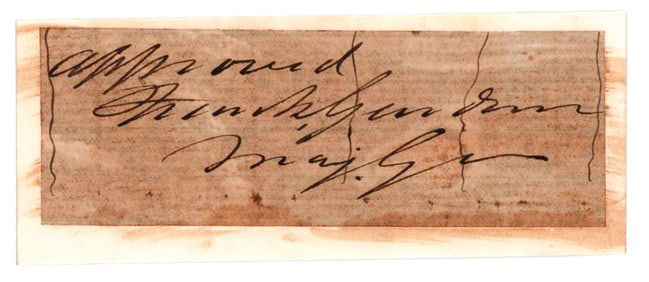 approved
Frank. Gardner
Maj. Gn